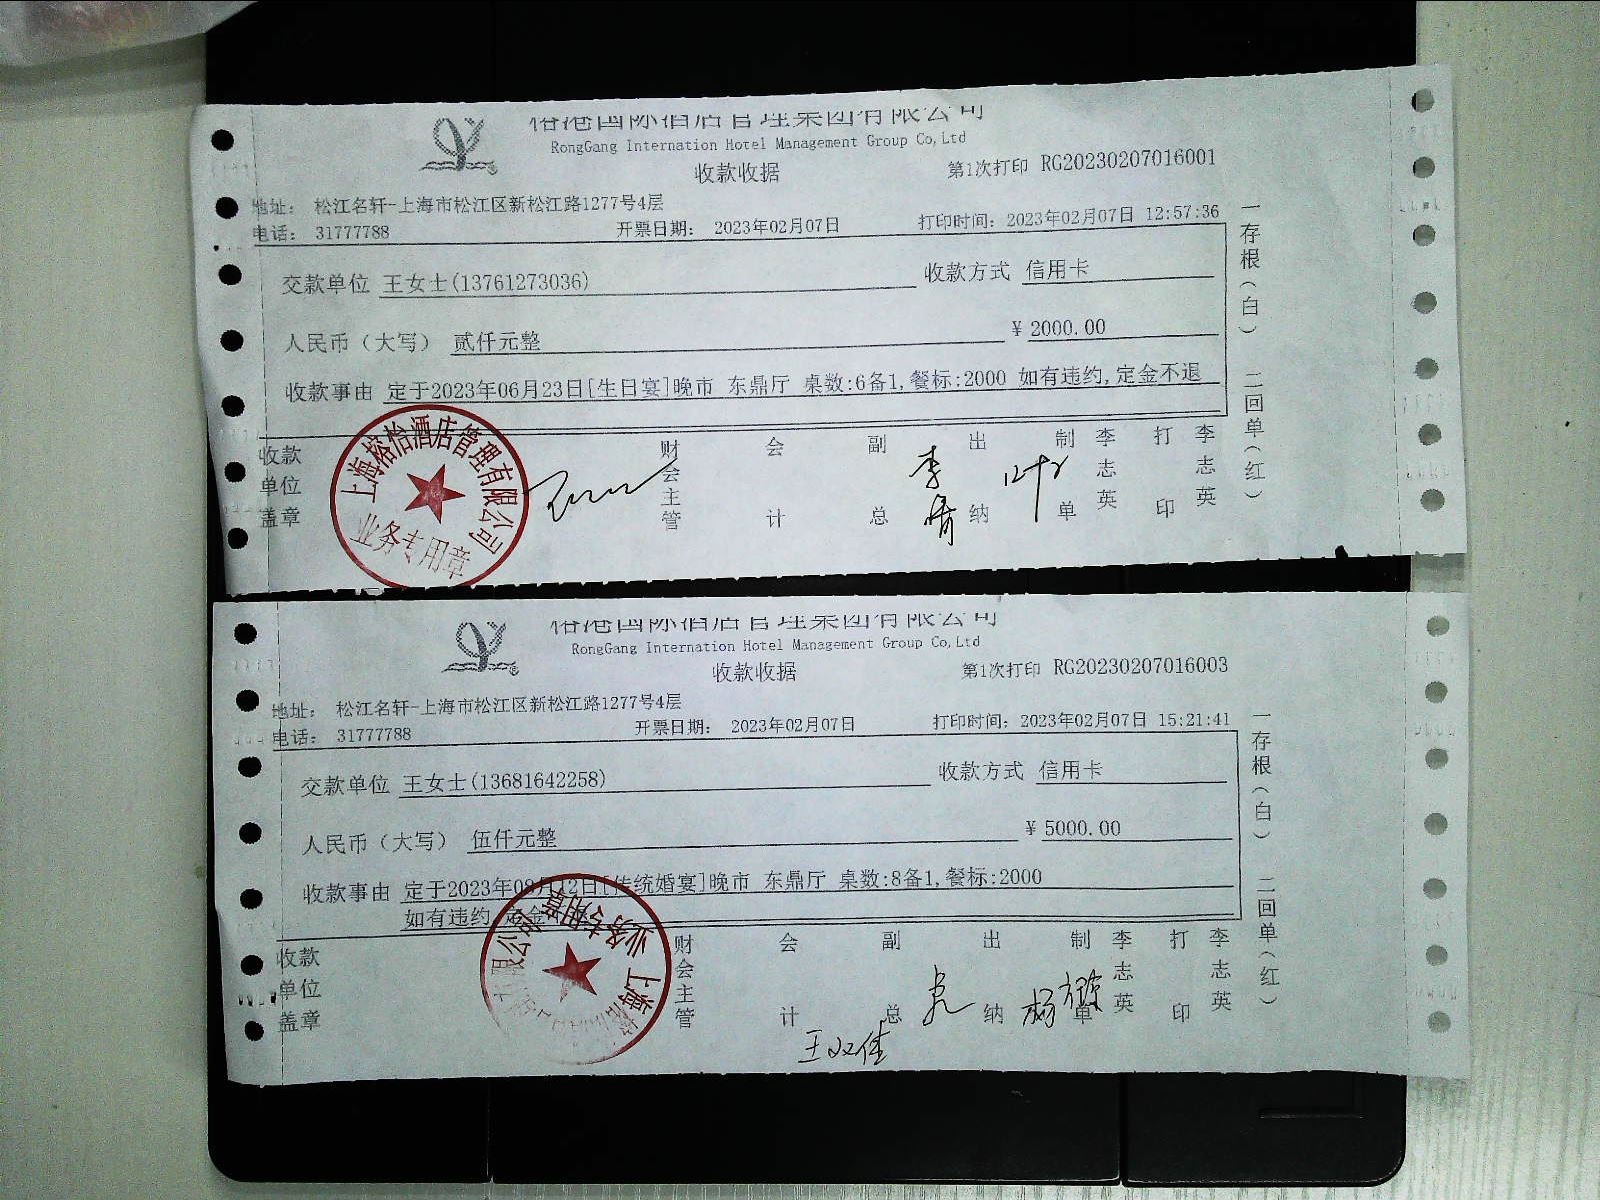 榕港国际酒店管理集团有限公司
RongGang Internation Hotel Management Group Co,Ltd
收款收据
第1次打印 RG20230207016001
地址: 松江名轩-上海市松江区新松江路1277号4层
电话: 31777788
开票日期: 2023年02月07日
打印时间: 2023年02月07日 12:57:36
交款单位 王女士(13761273036)
收款方式 信用卡
人民币(大写) 贰仟元整
¥ 2000.00
收款事由 定于2023年06月23日[生日宴]晚市 东鼎厅 桌数:6备1,餐标:2000 如有违约,定金不退
收款单位盖章
上海榕怡酒店管理有限公司
业务专用章
财会主管
会计
副总
出纳
制单
李志英
打印
李志英
一存根(白) 二回单(红)
榕港国际酒店管理集团有限公司
RongGang Internation Hotel Management Group Co,Ltd
收款收据
第1次打印 RG20230207016003
地址: 松江名轩-上海市松江区新松江路1277号4层
电话: 31777788
开票日期: 2023年02月07日
打印时间: 2023年02月07日 15:21:41
交款单位 王女士(13681642258)
收款方式 信用卡
人民币(大写) 伍仟元整
¥ 5000.00
收款事由 定于2023年08月12日[传统婚宴]晚市 东鼎厅 桌数:8备1,餐标:2000
如有违约,定金
收款单位盖章
上海
有限公司
业务专用章
财会主管
会计
副总
出纳
制单
李志英
打印
李志英
王双佳
一存根(白) 二回单(红)